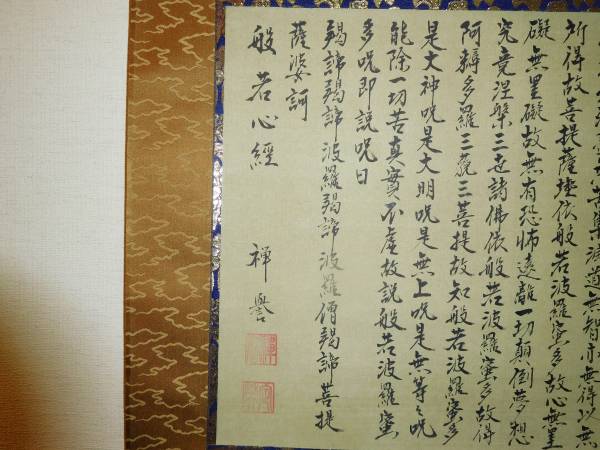 苦集滅道無智亦無得以無
所得故菩提薩埵依般若波羅蜜多故心無罣
礙無罣礙故無有恐怖遠離一切顛倒夢想
究竟涅槃三世諸佛依般若波羅蜜多故得
阿耨多羅三藐三菩提故知般若波羅蜜多
是大神呪是大明呪是無上呪是無等々呪
能除一切苦真實不虛故説般若波羅蜜
多呪即説呪曰
羯諦羯諦波羅羯諦波羅僧羯諦菩提
薩婆訶
般若心經 禅譽